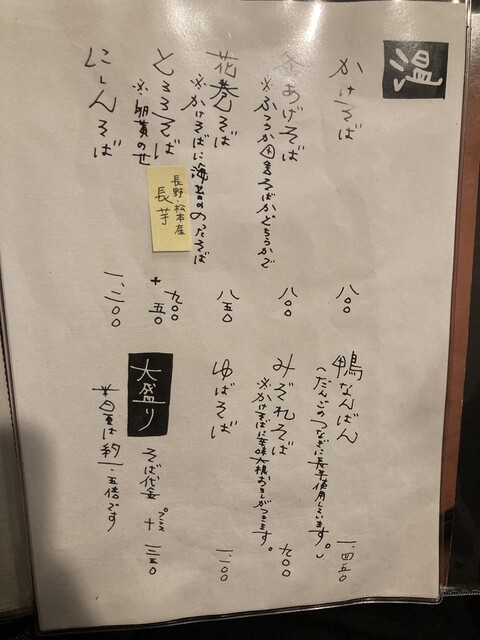 温
かけそば
八〇〇
釜あげそば
※ふつうか田舎そばかどちらかで
八〇〇
花巻そば
※かけそばに海苔ののったそば
八五〇
とろろそば
※卵黄のせ
長野・松本産
長芋
九〇〇
+五〇
にしんそば
一、二〇〇
鴨なんばん
(だんごのつなぎに長芋使用しています。)
一、四五〇
みぞれそば
※かけそばに辛味大根おろしがつきます。
九〇〇
ゆばそば
一、一〇〇
大盛り
そば代金プラス+三五〇
は約一・五倍です